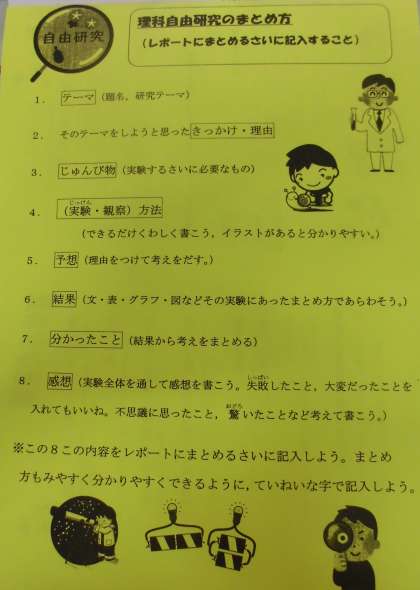 自由研究
理科自由研究のまとめ方
（レポートにまとめるさいに記入すること）
1． テーマ（題名，研究テーマ）
2． そのテーマをしようと思ったきっかけ・理由
3． じゅんび物（実験するさいに必要なもの）
4． （実験・観察）方法
じっけん
（できるだけくわしく書こう，イラストがあると分かりやすい。）
5． 予想（理由をつけて考えをだす。）
6． 結果（文・表・グラフ・図などその実験にあったまとめ方であらわそう。）
7． 分かったこと（結果から考えをまとめる）
8． 感想（実験全体を通して感想を書こう。失敗したこと，大変だったことを
しっぱい
入れてもいいね。不思議に思ったこと，驚いたことなど考えて書こう。）
おどろ
※この８この内容をレポートにまとめるさいに記入しよう。まとめ
方もみやすく分かりやすくできるように，ていねいな字で記入しよう。